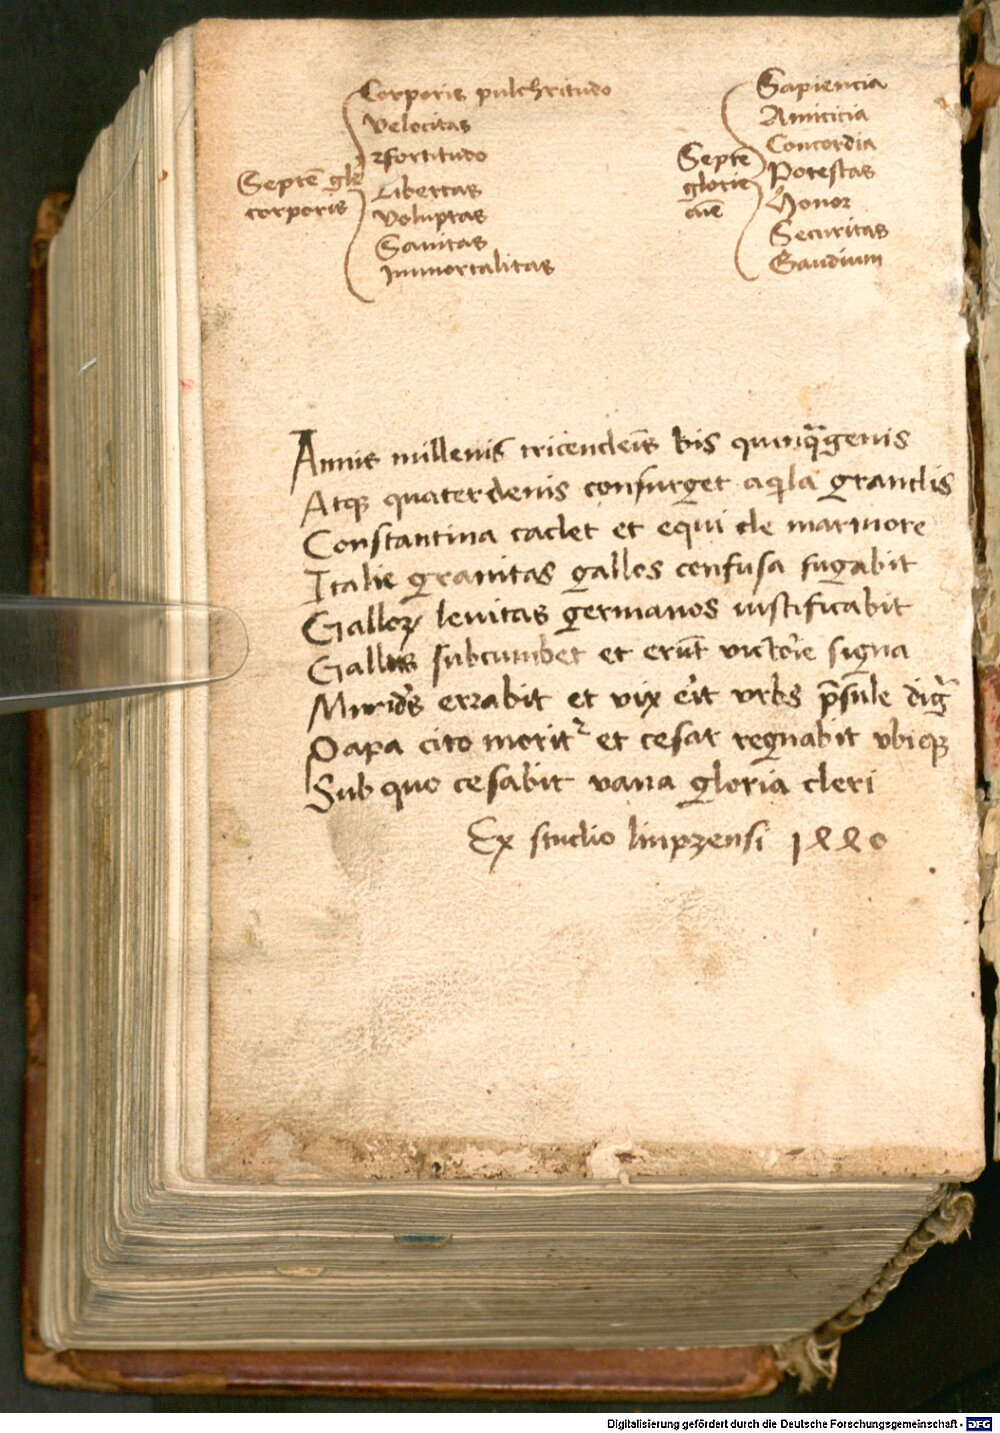 Corporis pulchritudo
Velocitas
Fortitudo
Septē glē
Libertas
corporis
Voluptas
Sanitas
Immortalitas
Sapiencia
Amicicia
Concordia
Septē
Potestas
glorie
Honor
aīe
Securitas
Gaudium
Annis millenis tricendeīs bis quinqᵃgenis
Atqꝫ quaterdenis consurget aqila grandis
Constantina cadet et equi de marmore
Italie grauitas gallos confusa fugabit
Galloꝝ leuitas germanos iustificabit
Gallus subcumbet et erūt victorie signa
errabit et vix erit vrbs p̄sule dig
Papa cito moritᷣ et cesar regnabit vbiqꝫ
Sub quo cesabit vana gloria cleri
Ex studio lipzensi 1ꝭꝭ0
Digitalisierung gefördert durch die Deutsche Forschungsgemeinschaft - DFG